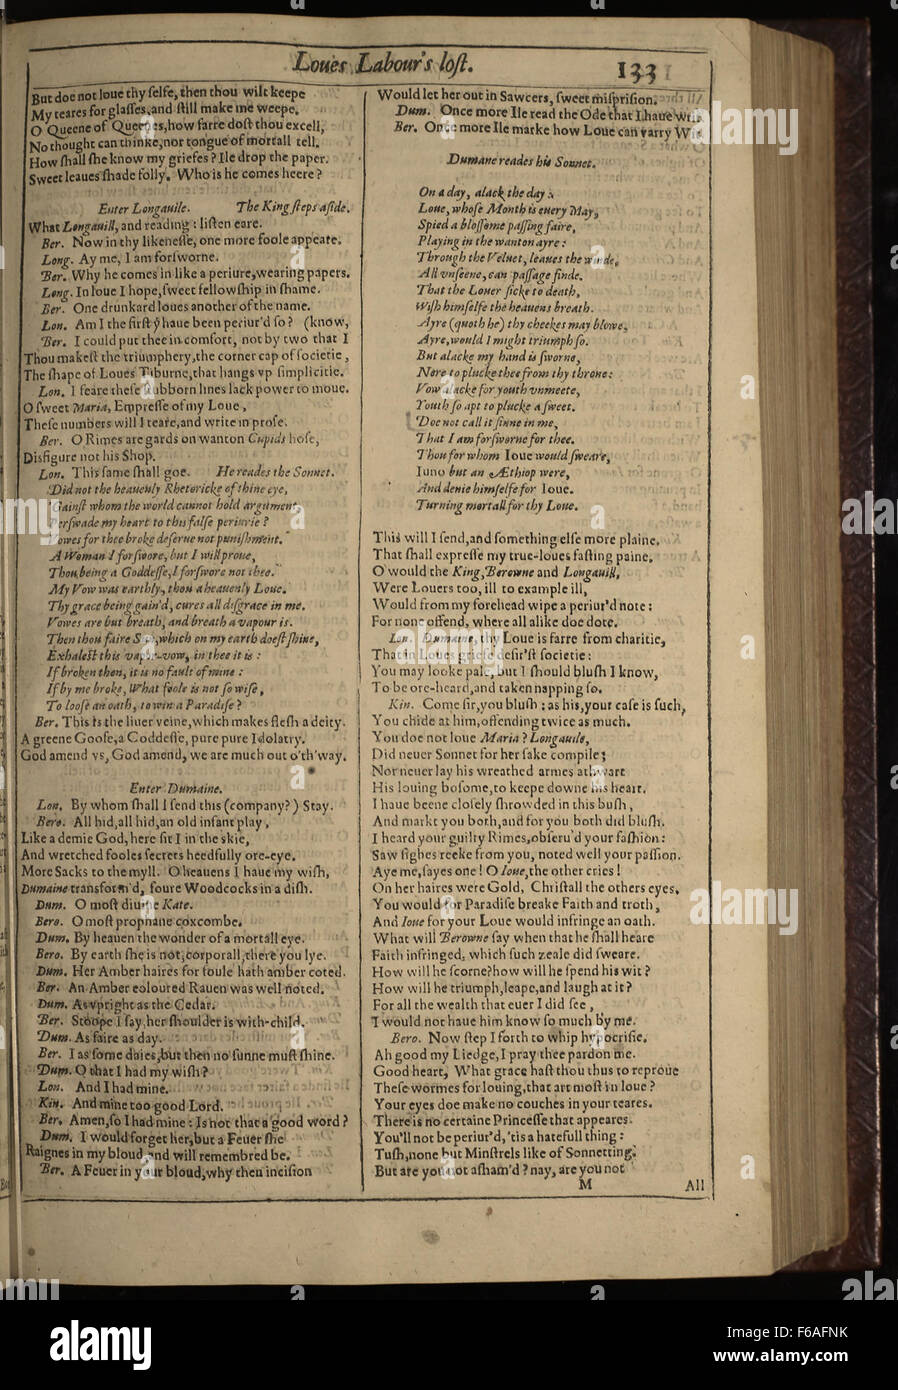 Loues Labour's loſt.
133
But doe not loue thy ſelfe, then thou wilt keepe
My teares for glaſſes, and ſtill make me weepe.
O Queene of Queenes, how farre doſt thou excell,
No thought can thinke, nor tongue of mortall tell.
How ſhall ſhe know my griefes? Ile drop the paper.
Sweet leaues ſhade folly. Who is he comes heere?
Enter Longauile. The King ſteps aſide.
What Longauill, and reading: liſten eare.
Ber. Now in thy likeneſſe, one more foole appeare.
Long. Ay me, I am forſworne.
Ber. Why he comes in like a periure, wearing papers.
Long. In loue I hope, ſweet fellowſhip in ſhame.
Ber. One drunkard loues another of the name.
Lon. Am I the firſt ẏ haue been periur'd ſo? (know,
Ber. I could put thee in comfort, not by two that I
Thou makeſt the triumphery, the corner cap of ſocietie,
The ſhape of Loues Tiburne, that hangs vp ſimplicitie.
Lon. I feare theſe ſtubborn lines lack power to moue.
O ſweet Maria, Empreſſe of my Loue,
Theſe numbers will I teare, and write in proſe.
Ber. O Rimes are gards on wanton Cupids hoſe,
Disfigure not his Shop.
Lon. This ſame ſhall goe. He reades the Sonnet.
Did not the heauenly Rhetoricke of thine eye,
'Gainſt whom the world cannot hold argument,
Perſwade my heart to this falſe periurie?
Vowes for thee broke deſerue not puniſhment.
A Woman I forſwore, but I will proue,
Thou being a Goddeſſe, I forſwore not thee.
My Vow was earthly, thou a heauenly Loue.
Thy grace being gain'd, cures all diſgrace in me.
Vowes are but breath, and breath a vapour is.
Then thou faire Sun, which on my earth doeſt ſhine,
Exhaleſt this vapor-vow, in thee it is:
If broken then, it is no fault of mine:
If by me broke, What foole is not ſo wiſe,
To looſe an oath, to win a Paradiſe?
Ber. This is the liuer veine, which makes fleſh a deity.
A greene Gooſe, a Coddeſſe, pure pure Idolatry.
God amend vs, God amend, we are much out o'th'way.
Enter Dumaine.
Lon. By whom ſhall I ſend this (company?) Stay.
Bero. All hid, all hid, an old infant play,
Like a demie God, here ſit I in the skie,
And wretched fooles ſecrets heedfully ore-eye.
More Sacks to the myll. O heauens I haue my wiſh,
Dumaine transform'd, foure Woodcocks in a diſh.
Dum. O moſt diuine Kate.
Bero. O moſt prophane coxcombe.
Dum. By heauen the wonder of a mortall eye.
Bero. By earth ſhe is not, corporall, there you lye.
Dum. Her Amber haires for foule hath amber coted.
Ber. An Amber coloured Rauen was well noted.
Dum. As vpright as the Cedar.
Ber. Stoope I ſay, her ſhoulder is with-child.
Dum. As faire as day.
Ber. I as ſome daies, but then no ſunne muſt ſhine.
Dum. O that I had my wiſh?
Lon. And I had mine.
Kin. And mine too good Lord.
Ber. Amen, ſo I had mine: Is not that a good word?
Dum. I would forget her, but a Feuer ſhe
Raignes in my bloud, and will remembred be.
Ber. A Feuer in your bloud, why then inciſion
Would let her out in Sawcers, ſweet miſpriſion.
Dum. Once more Ile read the Ode that I haue writ.
Ber. Once more Ile marke how Loue can varry Wit.
Dumane reades his Sonnet.
On a day, alack the day:
Loue, whoſe Month is euery May,
Spied a bloſſome paſſing faire,
Playing in the wanton ayre:
Through the Veluet, leaues the winde,
All vnſeene, can paſſage finde.
That the Louer ſicke to death,
Wiſh himſelfe the heauens breath.
Ayre (quoth he) thy cheekes may blowe,
Ayre, would I might triumph ſo.
But alacke my hand is ſworne,
Nere to plucke thee from thy throne:
Vow alacke for youth vnmeete,
Youth ſo apt to plucke a ſweet.
Doe not call it ſinne in me,
That I am forſworne for thee.
Thou for whom Ioue would ſweare,
Iuno but an Æthiop were,
And denie himſelfe for Ioue.
Turning mortall for thy Loue.
This will I ſend, and ſomething elſe more plaine.
That ſhall expreſſe my true-loues faſting paine.
O would the King, Berowne and Longauill,
Were Louers too, ill to example ill,
Would from my forehead wipe a periur'd note:
For none offend, where all alike doe dote.
Lon. Dumaine, thy Loue is farre from charitie,
That in Loues griefe deſir'ſt ſocietie:
You may looke pale, but I ſhould bluſh I know,
To be ore-heard, and taken napping ſo.
Kin. Come ſir, you bluſh: as his, your caſe is ſuch,
You chide at him, offending twice as much.
You doe not loue Maria? Longauile,
Did neuer Sonnet for her ſake compile;
Nor neuer lay his wreathed armes athwart
His louing boſome, to keepe downe his heart.
I haue beene cloſely ſhrowded in this buſh,
And markt you both, and for you both did bluſh.
I heard your guilty Rimes, obſeru'd your faſhion:
Saw ſighes reeke from you, noted well your paſſion.
Aye me, ſayes one! O Ioue, the other cries!
On her haires were Gold, Chriſtall the others eyes.
You would for Paradiſe breake Faith and troth,
And Ioue for your Loue would infringe an oath.
What will Berowne ſay when that he ſhall heare
Faith infringed, which ſuch zeale did ſweare.
How will he ſcorne? how will he ſpend his wit?
How will he triumph, leape, and laugh at it?
For all the wealth that euer I did ſee,
I would not haue him know ſo much by me.
Bero. Now ſtep I forth to whip hypocriſie.
Ah good my Liedge, I pray thee pardon me.
Good heart, What grace haſt thou thus to reproue
Theſe wormes for louing, that art moſt in loue?
Your eyes doe make no couches in your teares.
There is no certaine Princeſſe that appeares.
You'll not be periur'd, 'tis a hatefull thing:
Tuſh, none but Minſtrels like of Sonnetting.
But are you not aſham'd? nay, are you not
M All
alamy
Image ID: F6AFNK
www.alamy.com